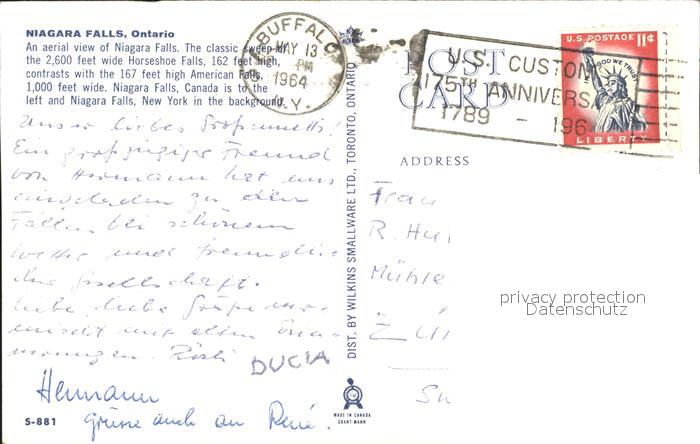 NIAGARA FALLS, Ontario
An aerial view of Niagara Falls. The classic sweep of
the 2,600 feet wide Horseshoe Falls, 162 feet high,
contrasts with the 167 feet high American Falls,
1,000 feet wide. Niagara Falls, Canada is to the
left and Niagara Falls, New York in the background.
BUFFALO
MAY 13
PM
1964
N.Y.
U.S. CUSTOM
175TH ANNIVERSA
1789 - 196
U.S. POSTAGE 11¢
IN GOD WE TRUST
LIBERTY
POST
CARD
ADDRESS
Unser liebes Grossmutti!
Ein grosszügiger Freund
von Hermann hat uns
eingeladen zu den
Fällen bei schönem
Wetter und freundli-
cher Gesellschaft.
Liebe, liebe Grüsse
Rösli
DUCIA
Hermann
Grüsse auch an René.
Frau
R. Hu
Mühle
Zür
S-881
DIST. BY WILKINS SMALLWARE LTD., TORONTO, ONTARIO
MADE IN CANADA
GRANT-MANN
privacy protection
Datenschutz